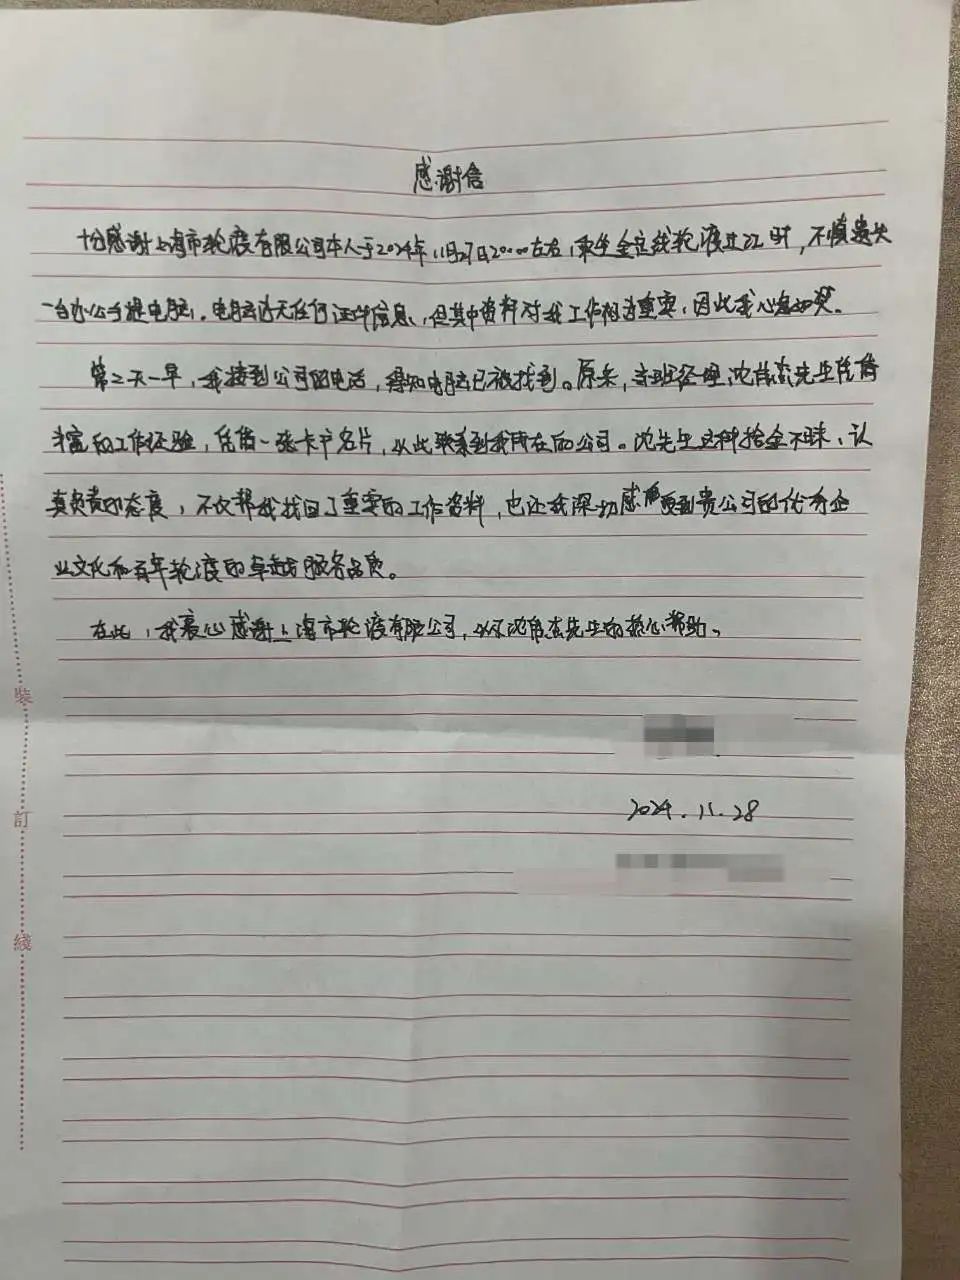 感谢信
十分感谢上海市轮渡有限公司本人于2024年11月27日20:00左右,乘坐金定线轮渡过江时,不慎遗失
一台办公手提电脑,电脑边无任何证件信息,但其中资料对我工作相当重要,因此我心急如焚。
第二天一早,我接到公司的电话,得知电脑已被找到。原来,当班经理沈 杰先生凭借
丰富的工作经验,凭借一张卡户名片,从此联系到我所在的公司。沈先生这种拾金不昧、认
真负责的态度,不仅帮我找回了重要的工作资料,也让我深切感受到贵公司的优秀企
业文化和百年轮渡的卓越服务品质。
在此,我衷心感谢上海市轮渡有限公司,以及沈 杰先生的热心帮助。
2024.11.28
裝
訂
綫